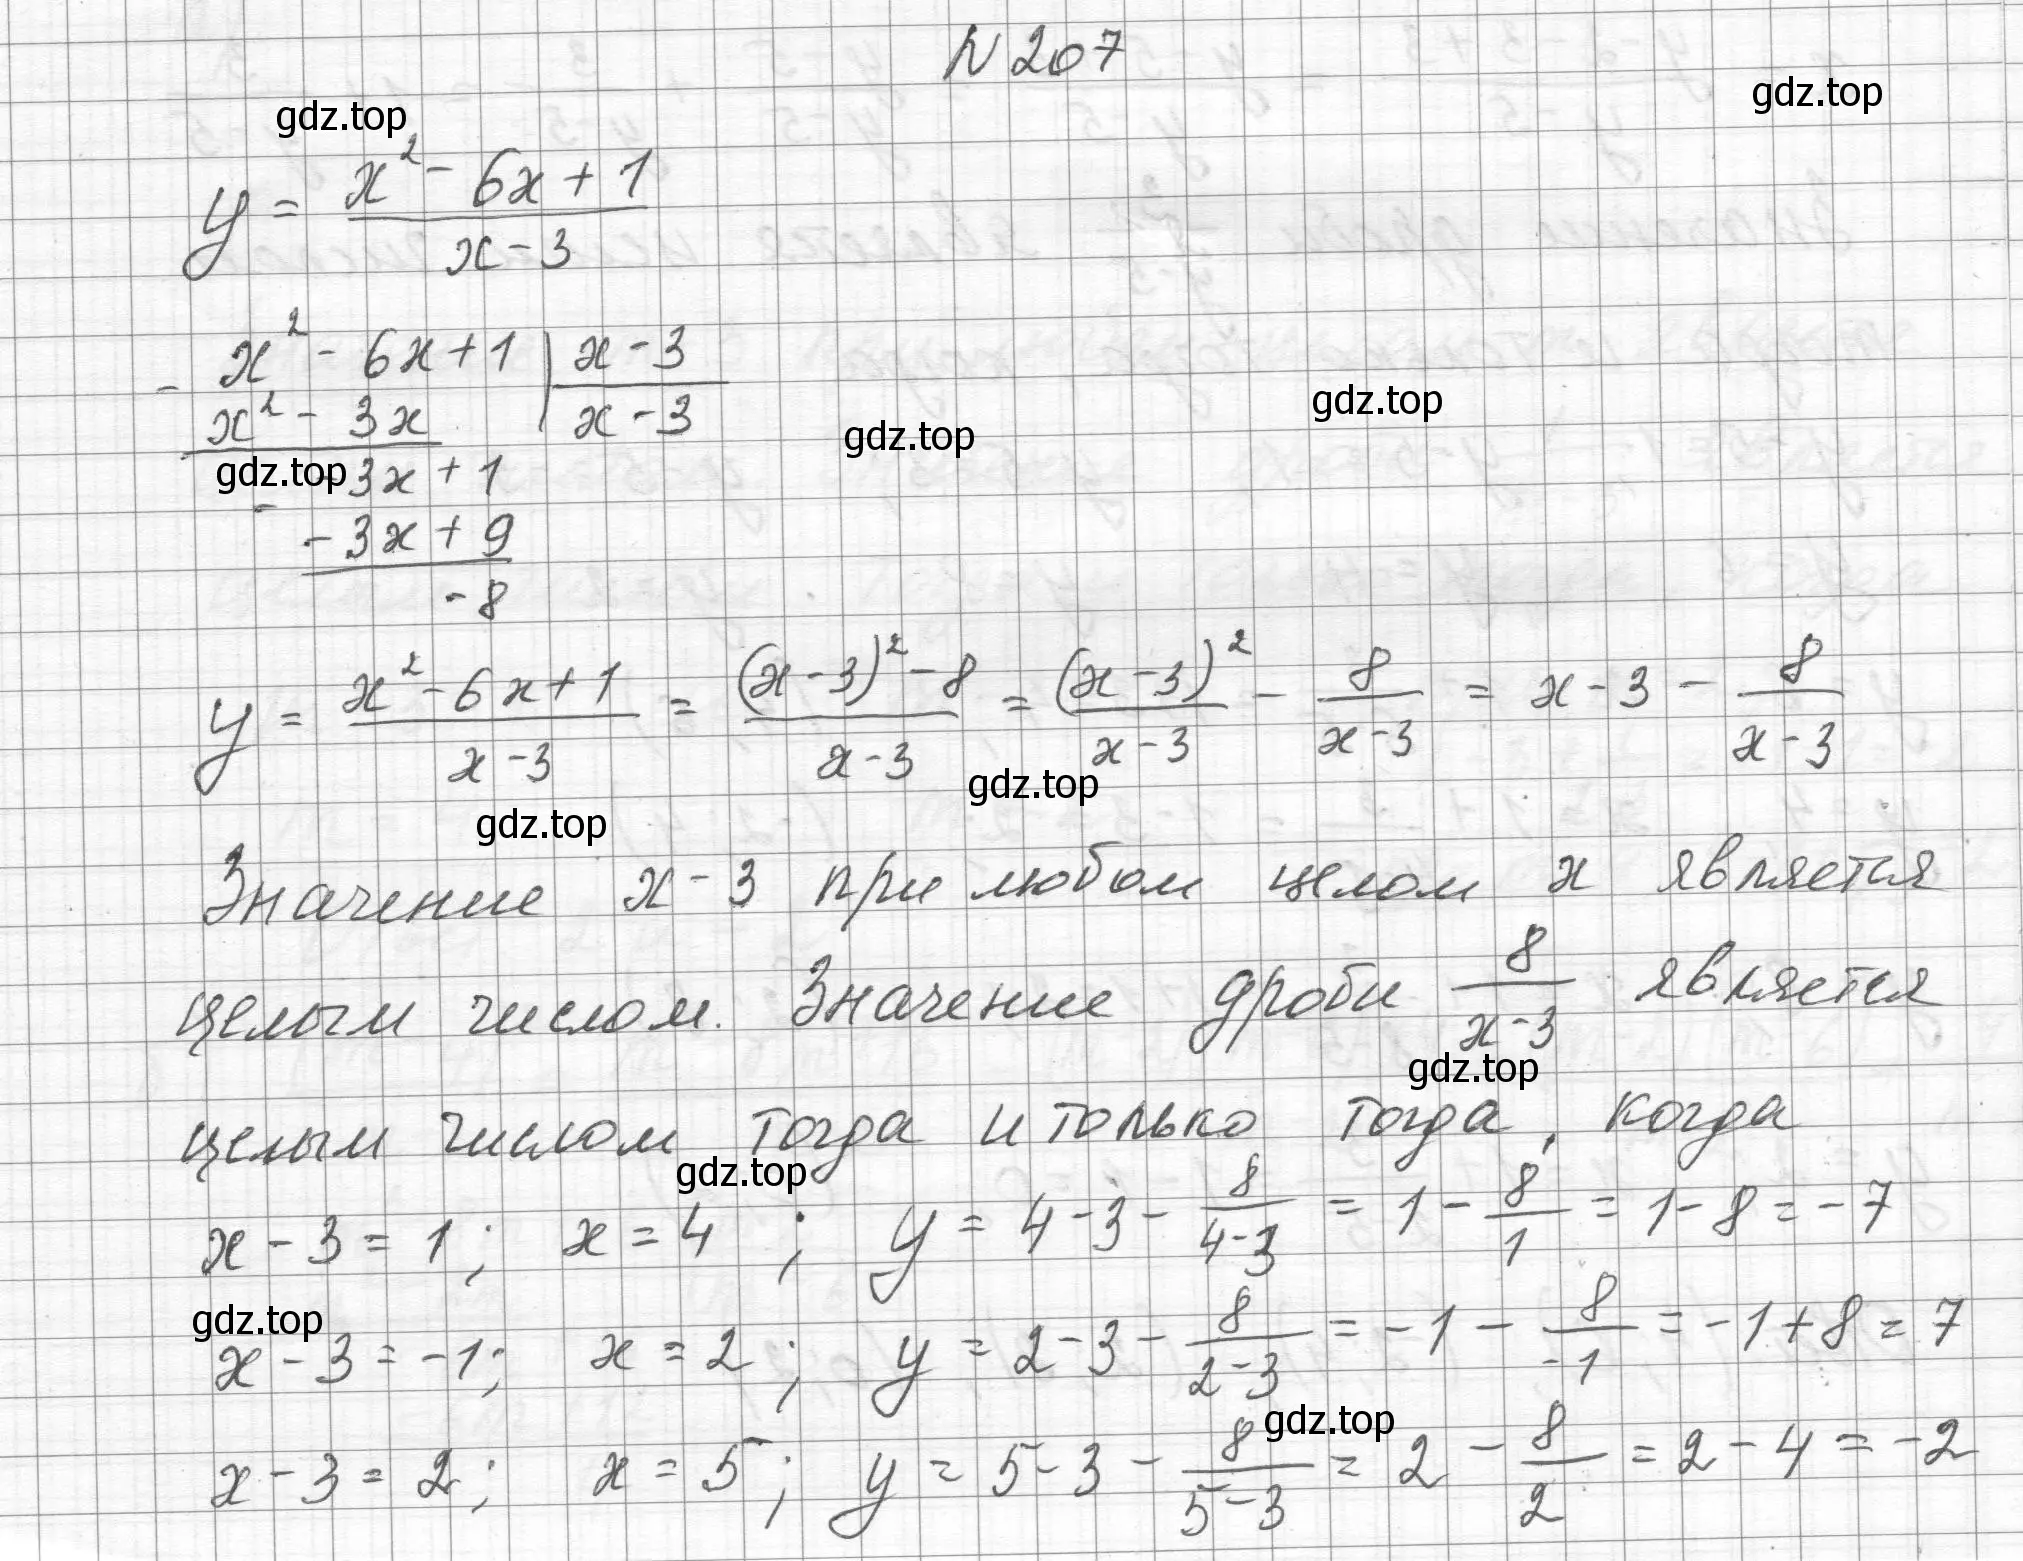 N 207
gdz.top
gdz.top
y = (x² - 6x + 1)/(x - 3)
- x² - 6x + 1 | x - 3
x² - 3x | x - 3
gdz.top
gdz.top
gdz.top
- 3x + 1
- - 3x + 9
- 8
y = (x² - 6x + 1)/(x - 3) = ((x - 3)² - 8)/(x - 3) = (x - 3)²/(x - 3) - 8/(x - 3) = x - 3 - 8/(x - 3)
gdz.top
gdz.top
Значение x - 3 при любом целом x является
целым числом. Значение дроби 8/(x - 3) является
gdz.top
целым числом тогда и только тогда, когда
gdz.top
x - 3 = 1; x = 4; y = 4 - 3 - 8/(4 - 3) = 1 - 8/1 = 1 - 8 = - 7
gdz.top
x - 3 = - 1; x = 2; y = 2 - 3 - 8/(2 - 3) = - 1 - 8/(-1) = - 1 + 8 = 7
gdz.top
x - 3 = 2; x = 5; y = 5 - 3 - 8/(5 - 3) = 2 - 8/2 = 2 - 4 = - 2